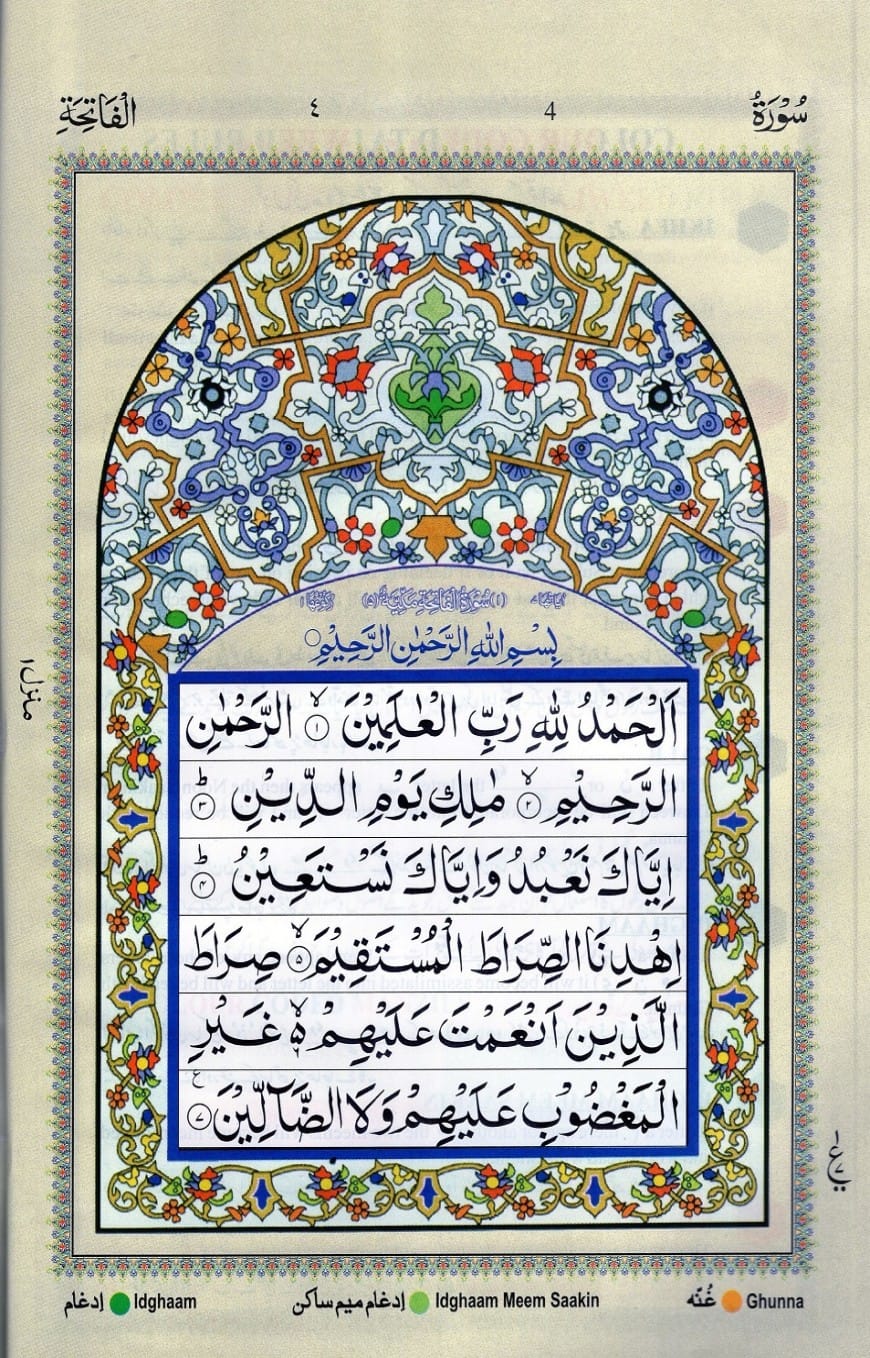 سُوْرَةُ 4 ٤ الْفَاتِحَةِ
بِسْمِ اللّٰهِ الرَّحْمٰنِ الرَّحِيْمِ
اَلْحَمْدُ لِلّٰهِ رَبِّ الْعٰلَمِيْنَ ۙ﴿۱﴾ الرَّحْمٰنِ
الرَّحِيْمِ ۙ﴿۲﴾ مٰلِكِ يَوْمِ الدِّيْنِ ؕ﴿۳﴾
اِيَّاكَ نَعْبُدُ وَاِيَّاكَ نَسْتَعِيْنُ ؕ﴿۴﴾
اِهْدِنَا الصِّرَاطَ الْمُسْتَقِيْمَ ۙ﴿۵﴾ صِرَاطَ
الَّذِيْنَ اَنْعَمْتَ عَلَيْهِمْ ۙ۬ غَيْرِ
الْمَغْضُوْبِ عَلَيْهِمْ وَلَا الضَّآلِّيْنَ ﴿۷﴾
منزل ۱
Ghunna غُنّه Idghaam Meem Saakin إدغام ميم ساكن Idghaam إدغام